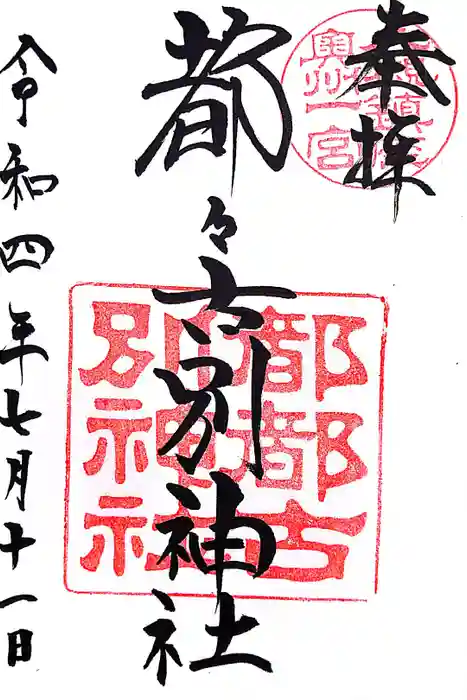 奉拝
奥州一宮
都々古別神社
都都古
別神社
令和四年七月十一日